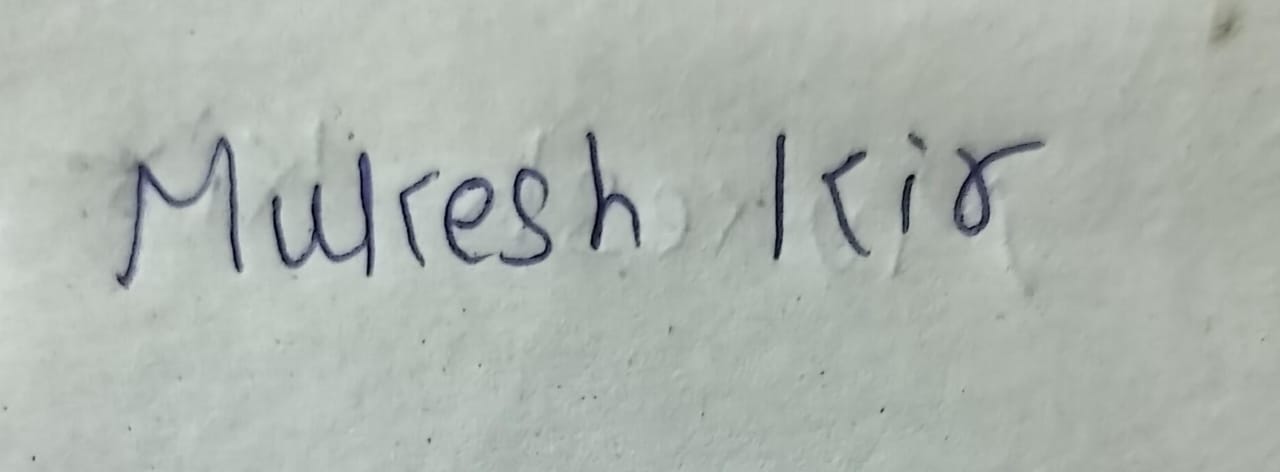 Mukesh Kir